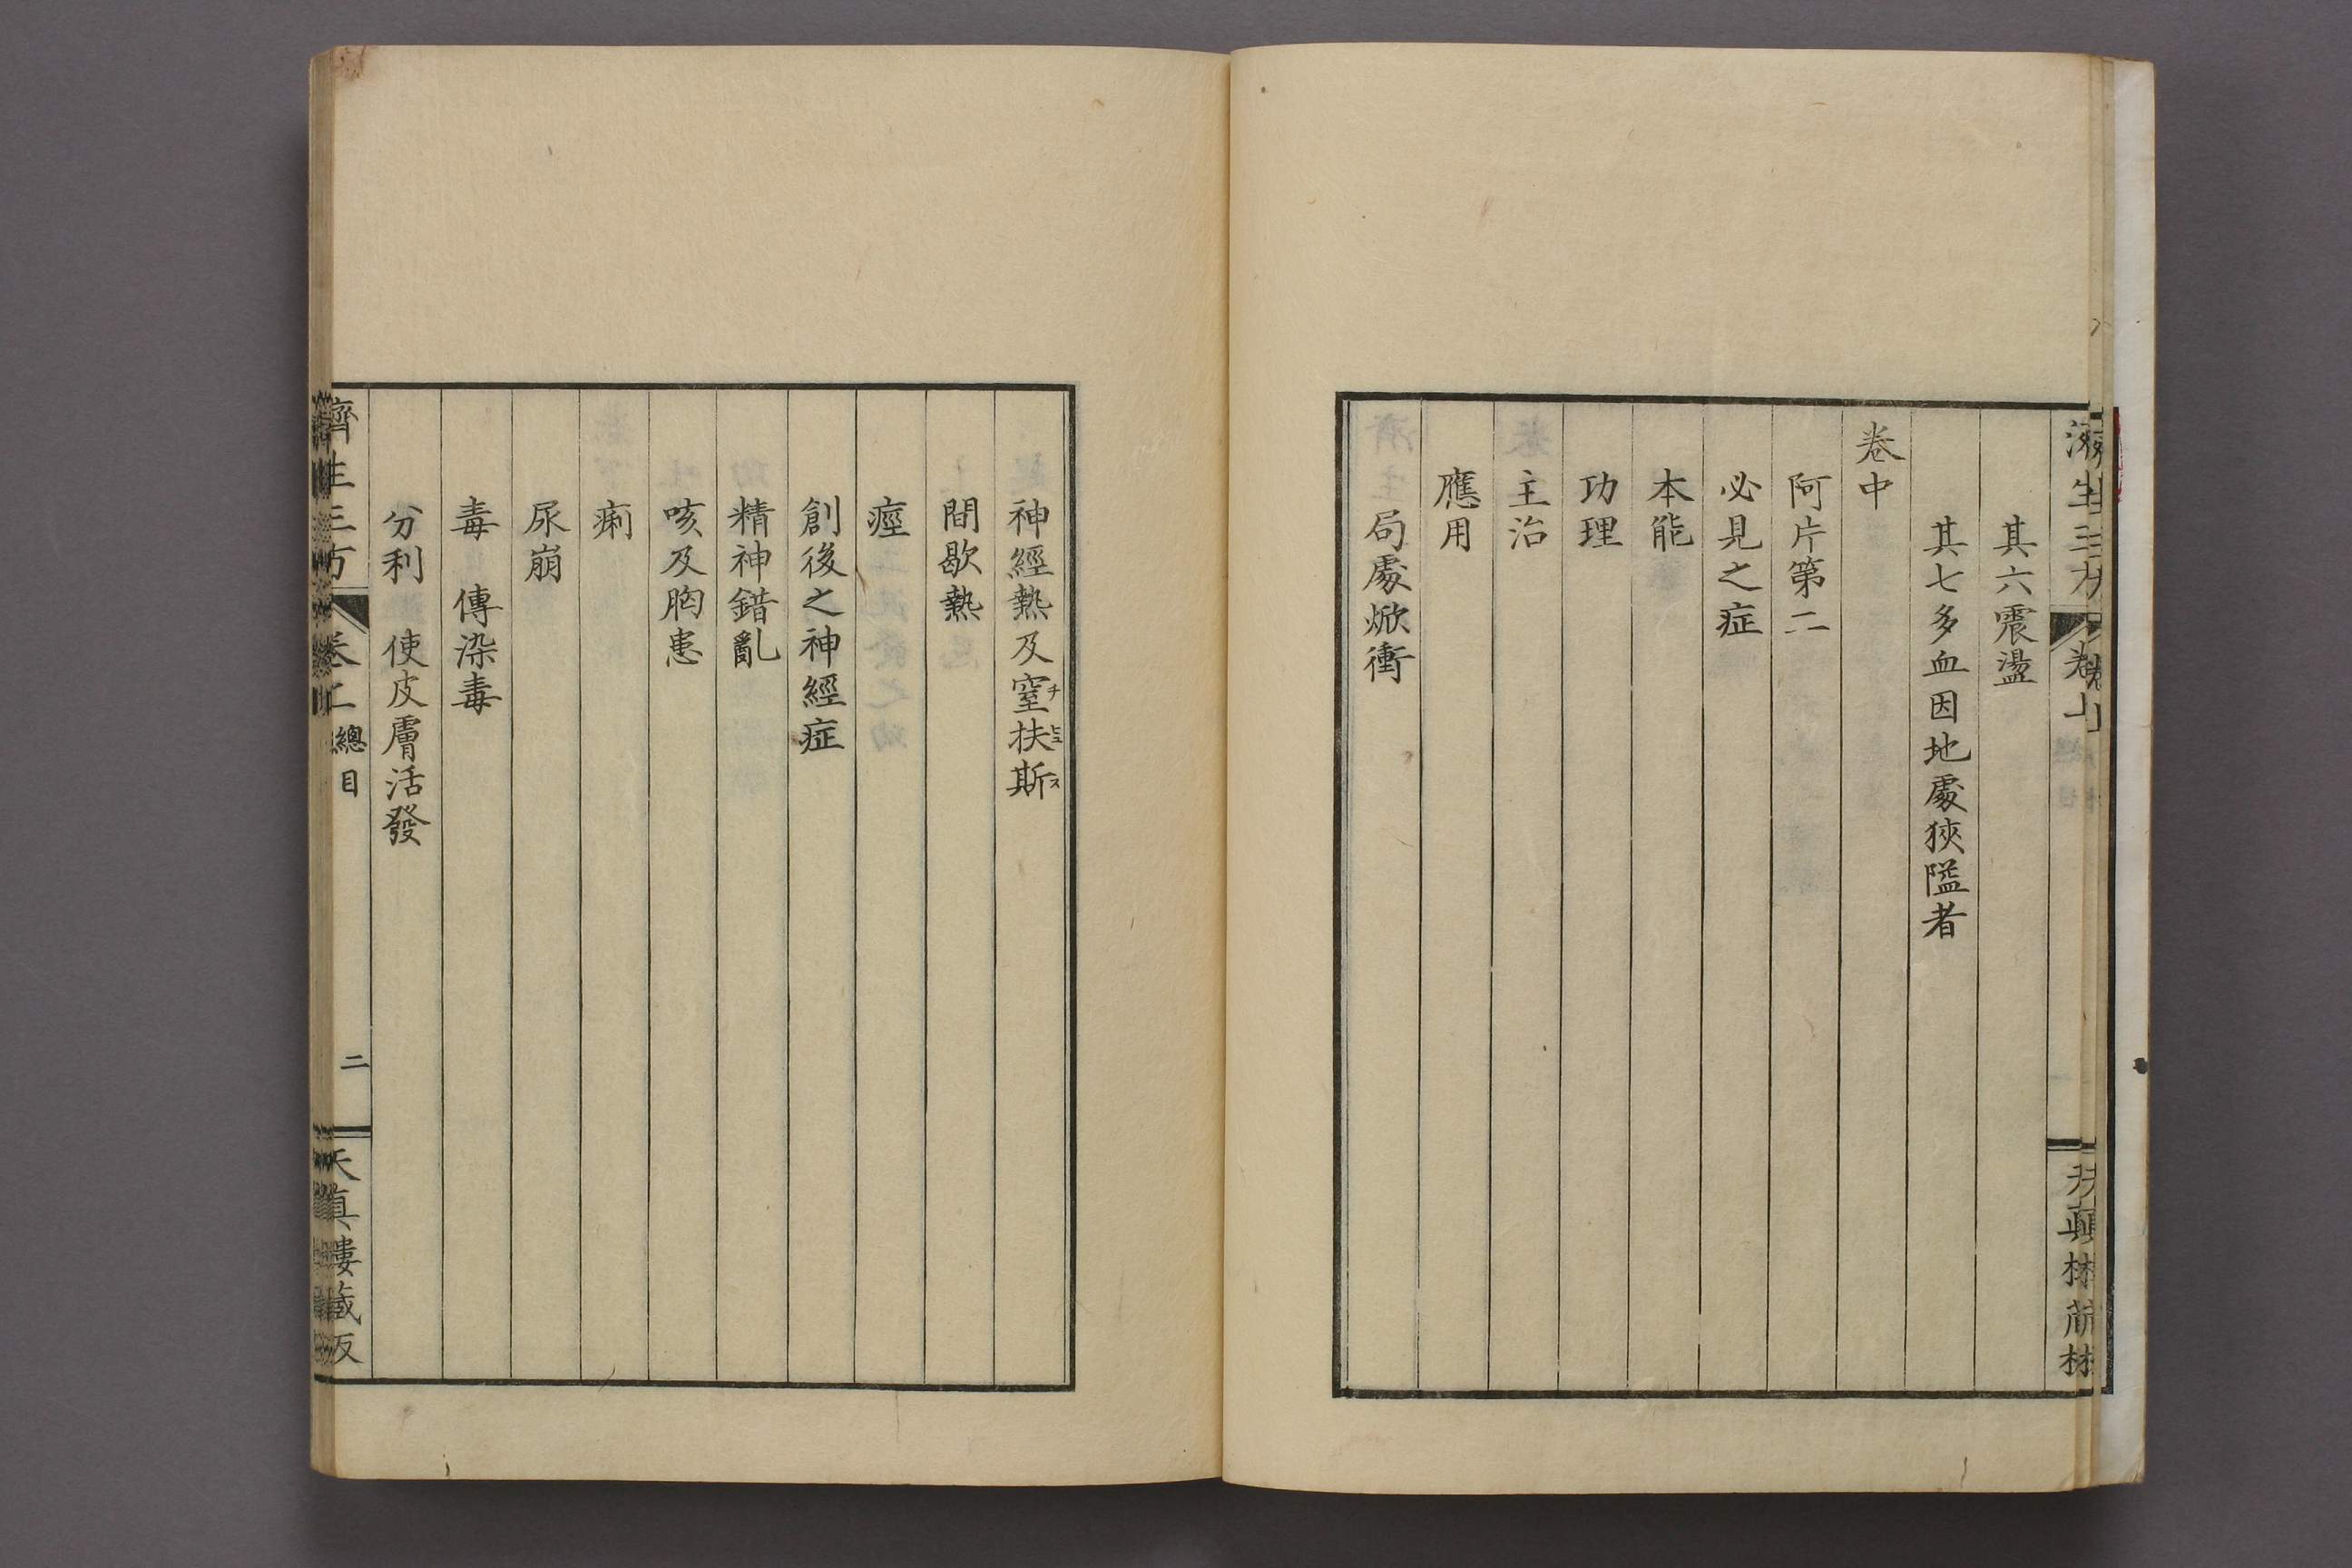 其六震盪
其七多血因地處狹隘者
卷中
阿片第二
必見之症
本能
功理
主治
應用
局處焮衝
神經熱及窒扶斯
チヒユス
間歇熱
痙
創後之神經症
精神錯亂
咳及胸患
痢
尿崩
毒　傳染毒
分利　使皮膚活發
濟生三方 卷上 總目 二 天真樓藏板